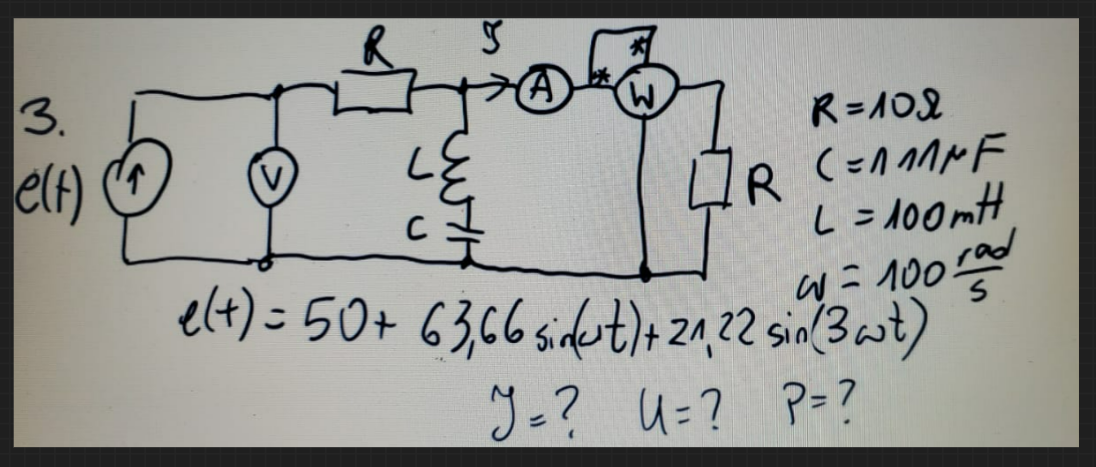 3.
e(t)
V
R
J
A
*
*
W
L
C
R
R = 10Ω
C = 111μF
L = 100mH
ω = 100 rad/s
e(t) = 50 + 63,66 sin(ωt) + 21,22 sin(3ωt)
J = ? U = ? P = ?